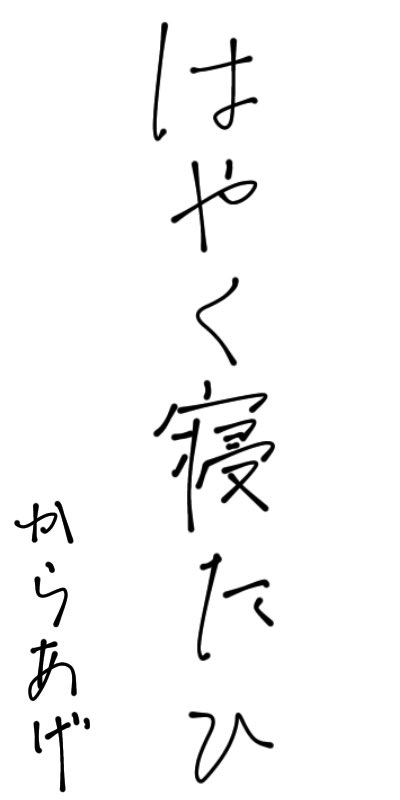 はやく寝たひ
からあげ